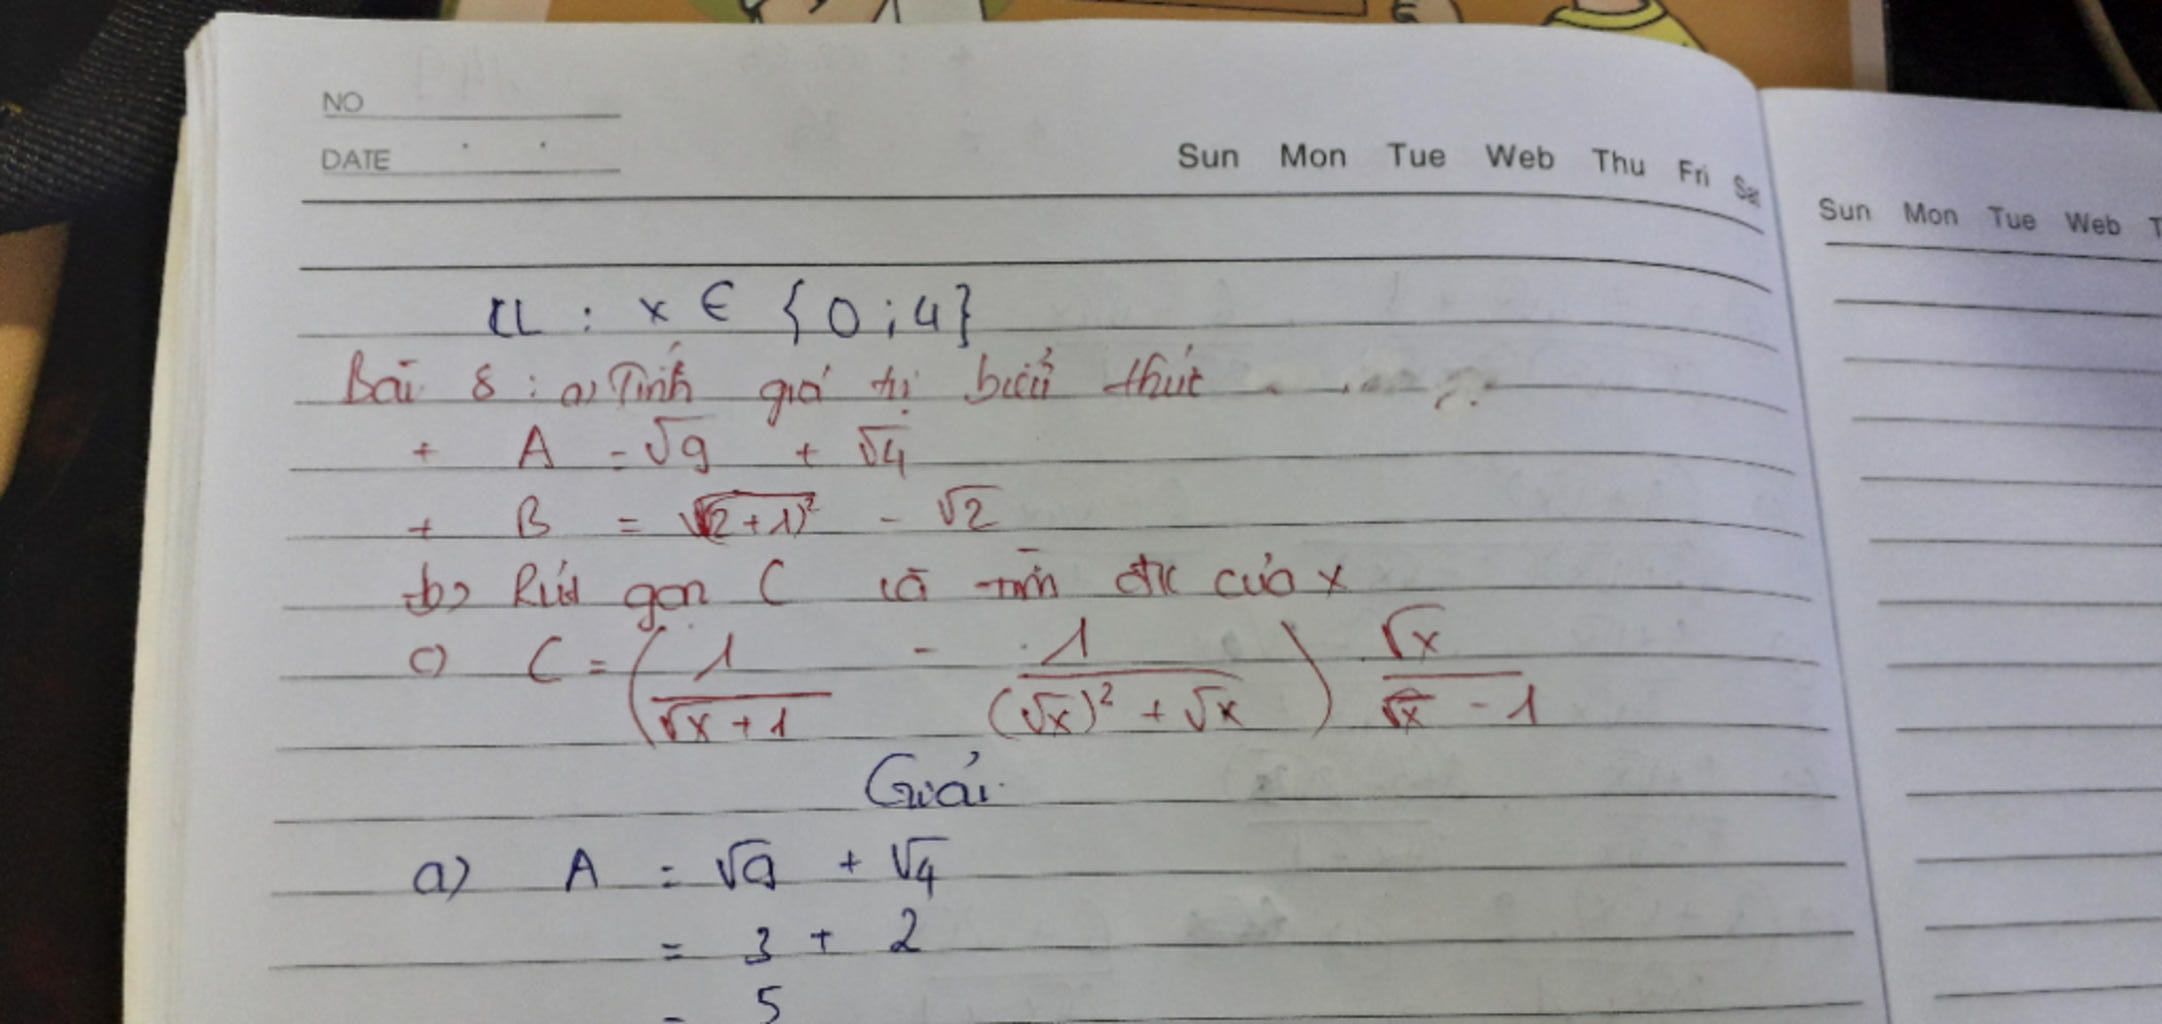 NO
DATE
Sun Mon Tue Web Thu Fri Sat
Sun Mon Tue Web T
KL : x ∈ {0 ; 4}
Bài 8 : a) Tính giá trị biểu thức
+ A = √9 + √4
+ B = √(2+1)² - √2
b) Rút gọn C và tìm đk của x
c) C = (1/(√x+1) - 1/((√x)² + √x)) √x/(√x - 1)
Giải
a) A = √9 + √4
= 3 + 2
= 5